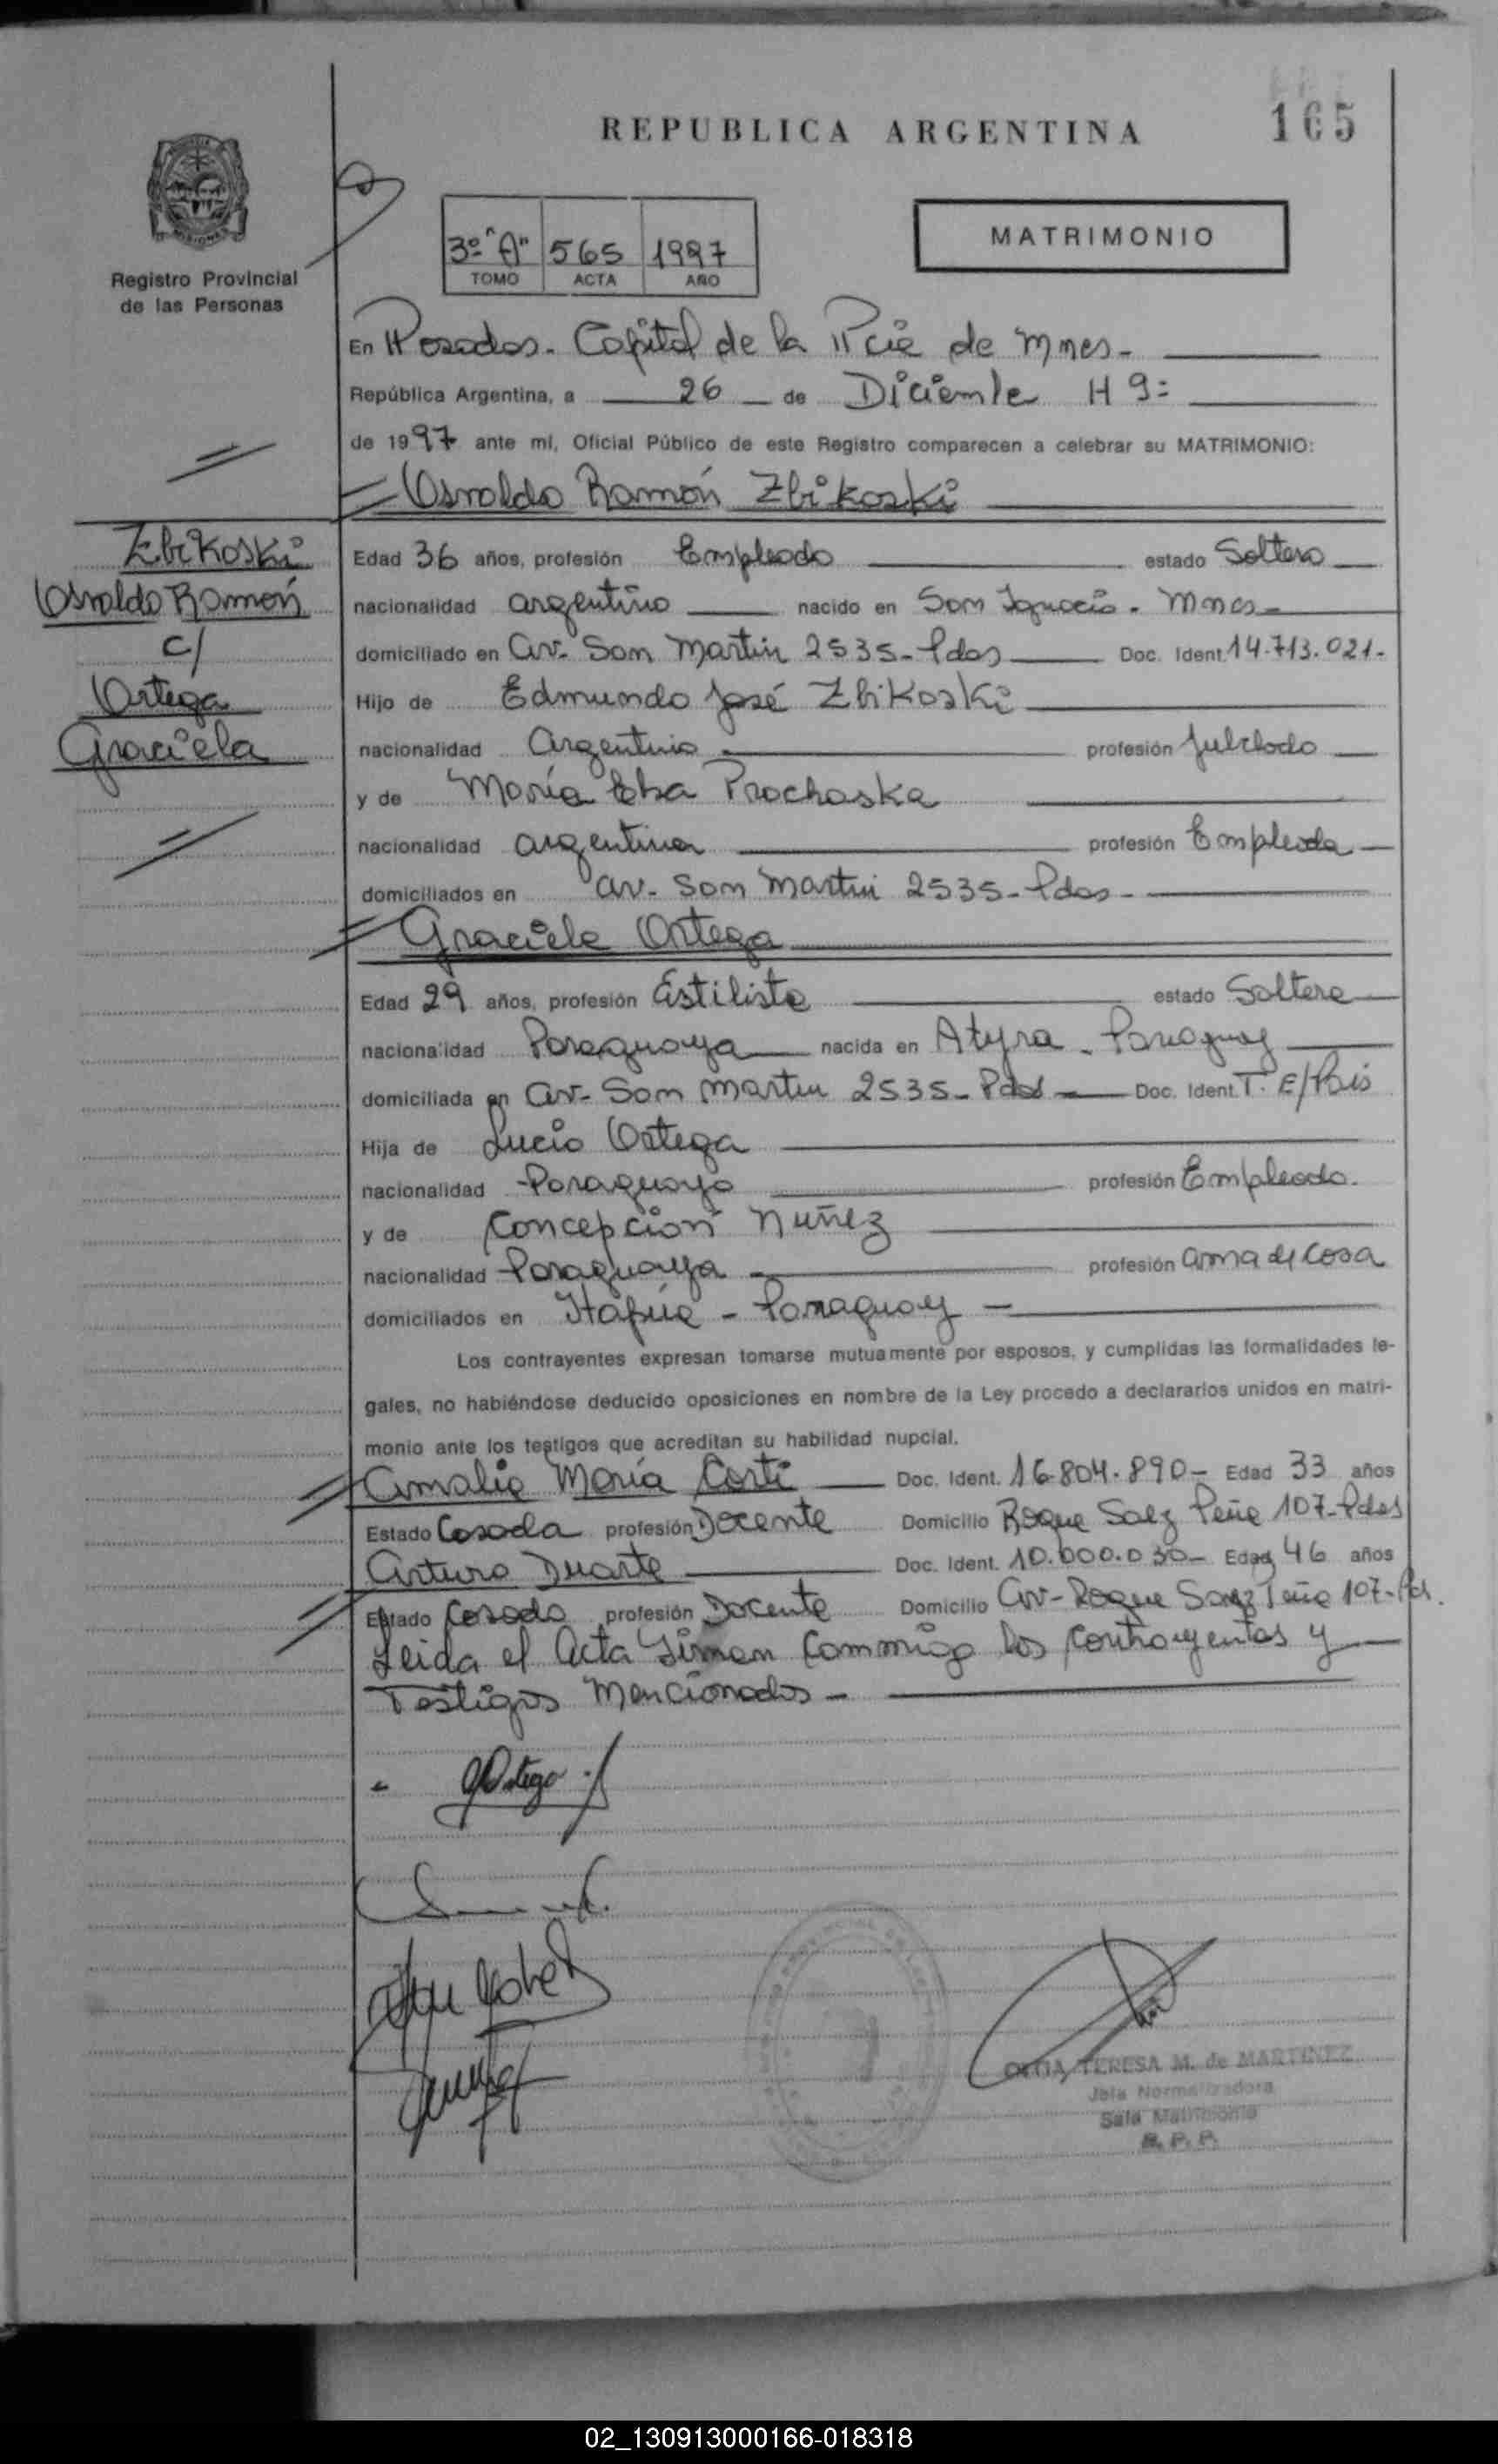 REPUBLICA ARGENTINA
165
Registro Provincial
de las Personas
3º "A" 565 1997
TOMO ACTA AÑO
MATRIMONIO
En Posadas - Capital de la Pcia de Mnes -
República Argentina, a 26 de Diciembre H 9:
de 1997 ante mí, Oficial Público de este Registro comparecen a celebrar su MATRIMONIO:
Osvaldo Ramón Zbikoski
Zbikoski
Osvaldo Ramón
c/
Ortega
Graciela
Edad 36 años, profesión Empleado estado Soltero
nacionalidad argentino nacido en San Ignacio - Mnes -
domiciliado en av. San Martin 2535 - Pdas Doc. Ident. 14.713.021 -
Hijo de Edmundo José Zbikoski
nacionalidad argentino profesión Jubilado
y de María Prochaska
nacionalidad argentina profesión Empleada
domiciliados en av. San Martin 2535 - Pdas -
Graciela Ortega
Edad 29 años, profesión Estilista estado Soltera
nacionalidad Paraguaya nacida en Atyra - Paraguay
domiciliada en av. San Martin 2535 - Pdas Doc. Ident. T. E/Pais
Hija de Lucio Ortega
nacionalidad Paraguayo profesión Empleado.
y de Concepción Nuñez
nacionalidad Paraguaya profesión ama de Casa
domiciliados en Itapúa - Paraguay -
Los contrayentes expresan tomarse mutuamente por esposos, y cumplidas las formalidades le-
gales, no habiéndose deducido oposiciones en nombre de la Ley procedo a declararlos unidos en matri-
monio ante los testigos que acreditan su habilidad nupcial.
Amalia María Corti Doc. Ident. 16.804.890 - Edad 33 años
Estado Casada profesión Docente Domicilio Roque Saez Peña 107 - Pdas
Arturo Duarte Doc. Ident. 10.000.030 - Edad 46 años
Estado Casado profesión Docente Domicilio av - Roque Saez Peña 107 - Pds.
Leida el Acta Firman Conmigo los contrayentes y
Testigos Mencionados -
GOrtega
TERESA M. de MARTINEZ
Jefa Normalizadora
Sala Matrimonio
R. P. P.
02_130913000166-018318